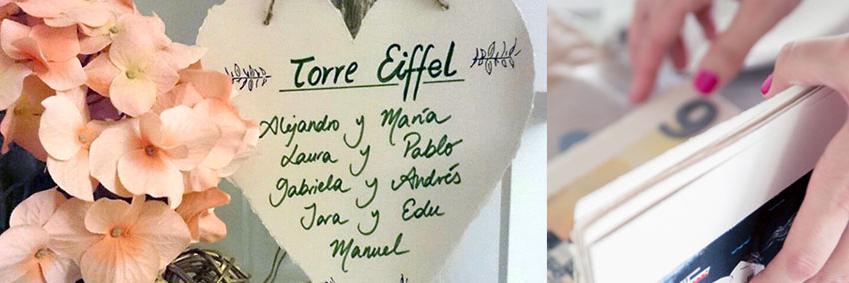 Torre Eiffel
Alejandro y María
Laura y Pablo
Gabriela y Andrés
Jara y Edu
Manuel
9